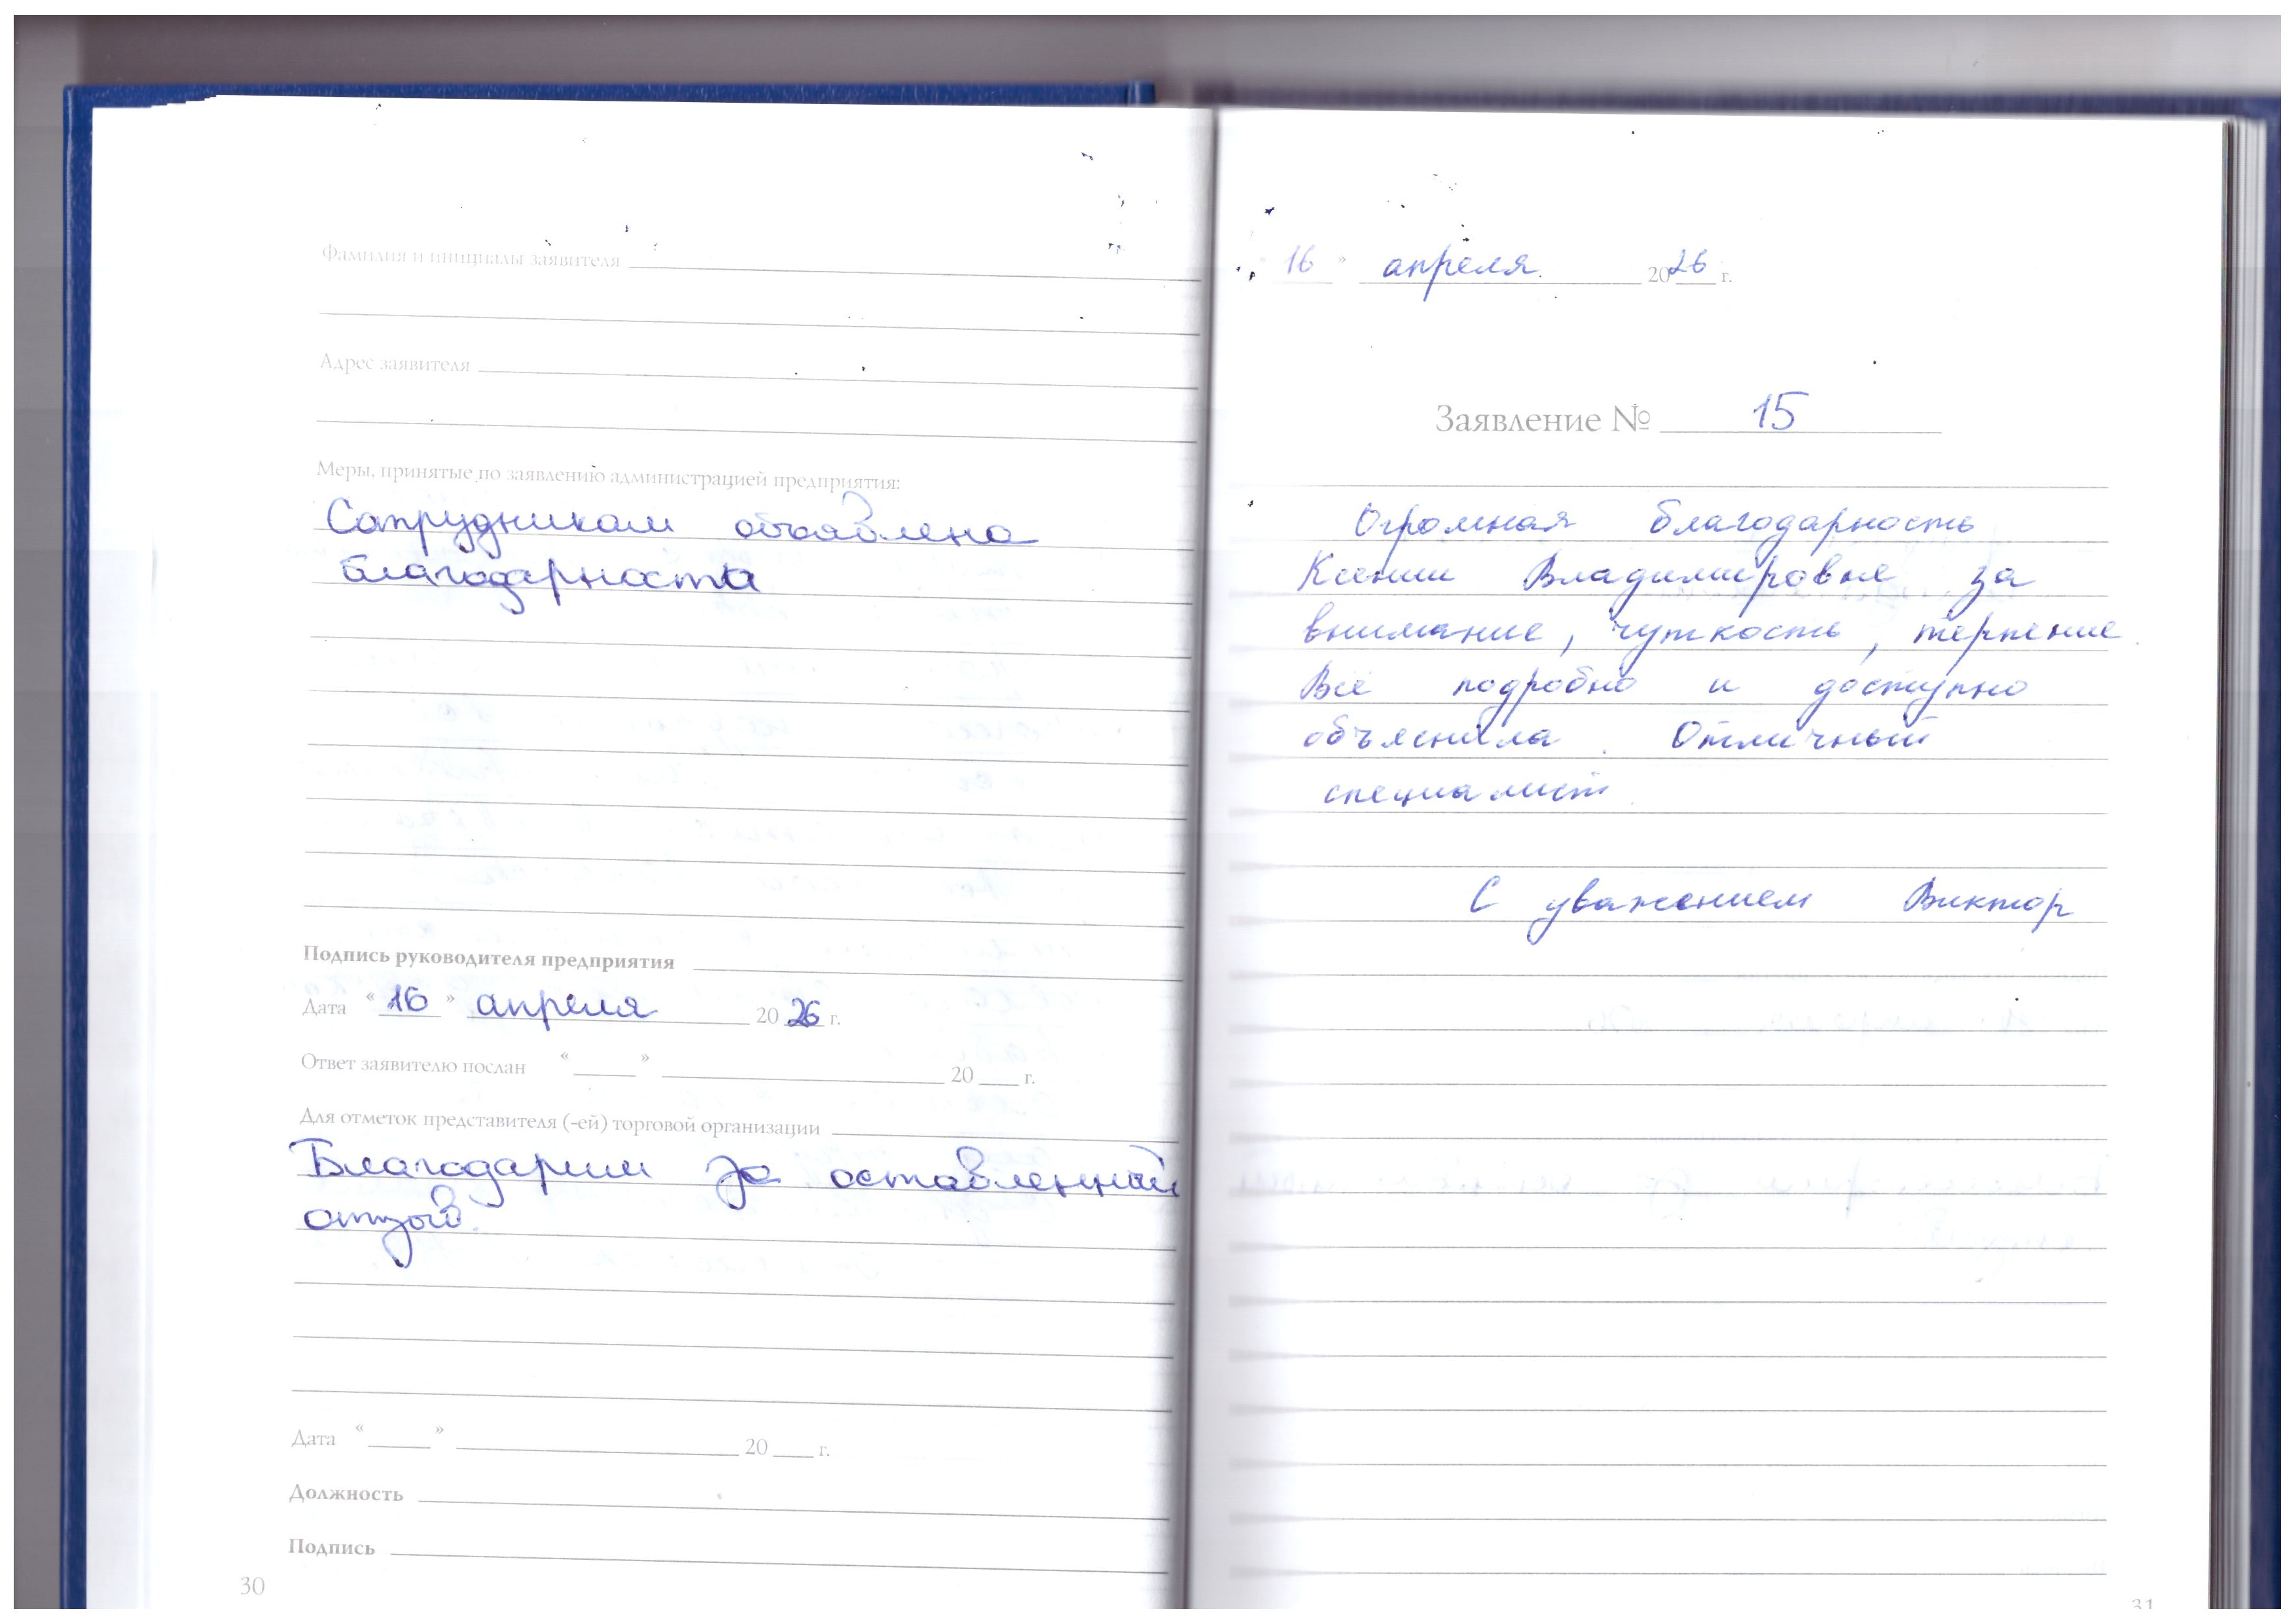 Фамилия и инициалы заявителя
Адрес заявителя
Меры, принятые по заявлению администрацией предприятия:
Сотрудникам объявлена
благодарность
Подпись руководителя предприятия
Дата « 16 » апреля 20 26 г.
Ответ заявителю послан « » 20 г.
Для отметок представителя (-ей) торговой организации
Благодарим за оставленный
отзыв.
Дата « » 20 г.
Должность
Подпись
30
16 » апреля 20 26 г.
Заявление № 15
Огромная благодарность
Ксении Владимировне за
внимание, чуткость, терпение.
Всё подробно и доступно
объяснила. Отличный
специалист.
С уважением Виктор
31